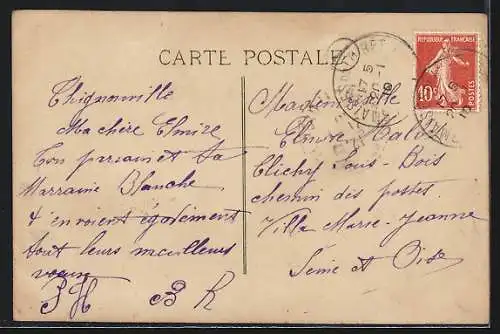 CARTE POSTALE
REPUBLIQUE FRANÇAISE
10c
POSTES
Thignonville
Ma chère Elmire
Ton parrain et ta
Marraine Blanche
t'envoient également
tout leurs meilleurs
voeux
P H B R
Mademoiselle
Elmire
Clichy sous-Bois
chemin des postes
Villa Marie-Jeanne
Seine et Oise